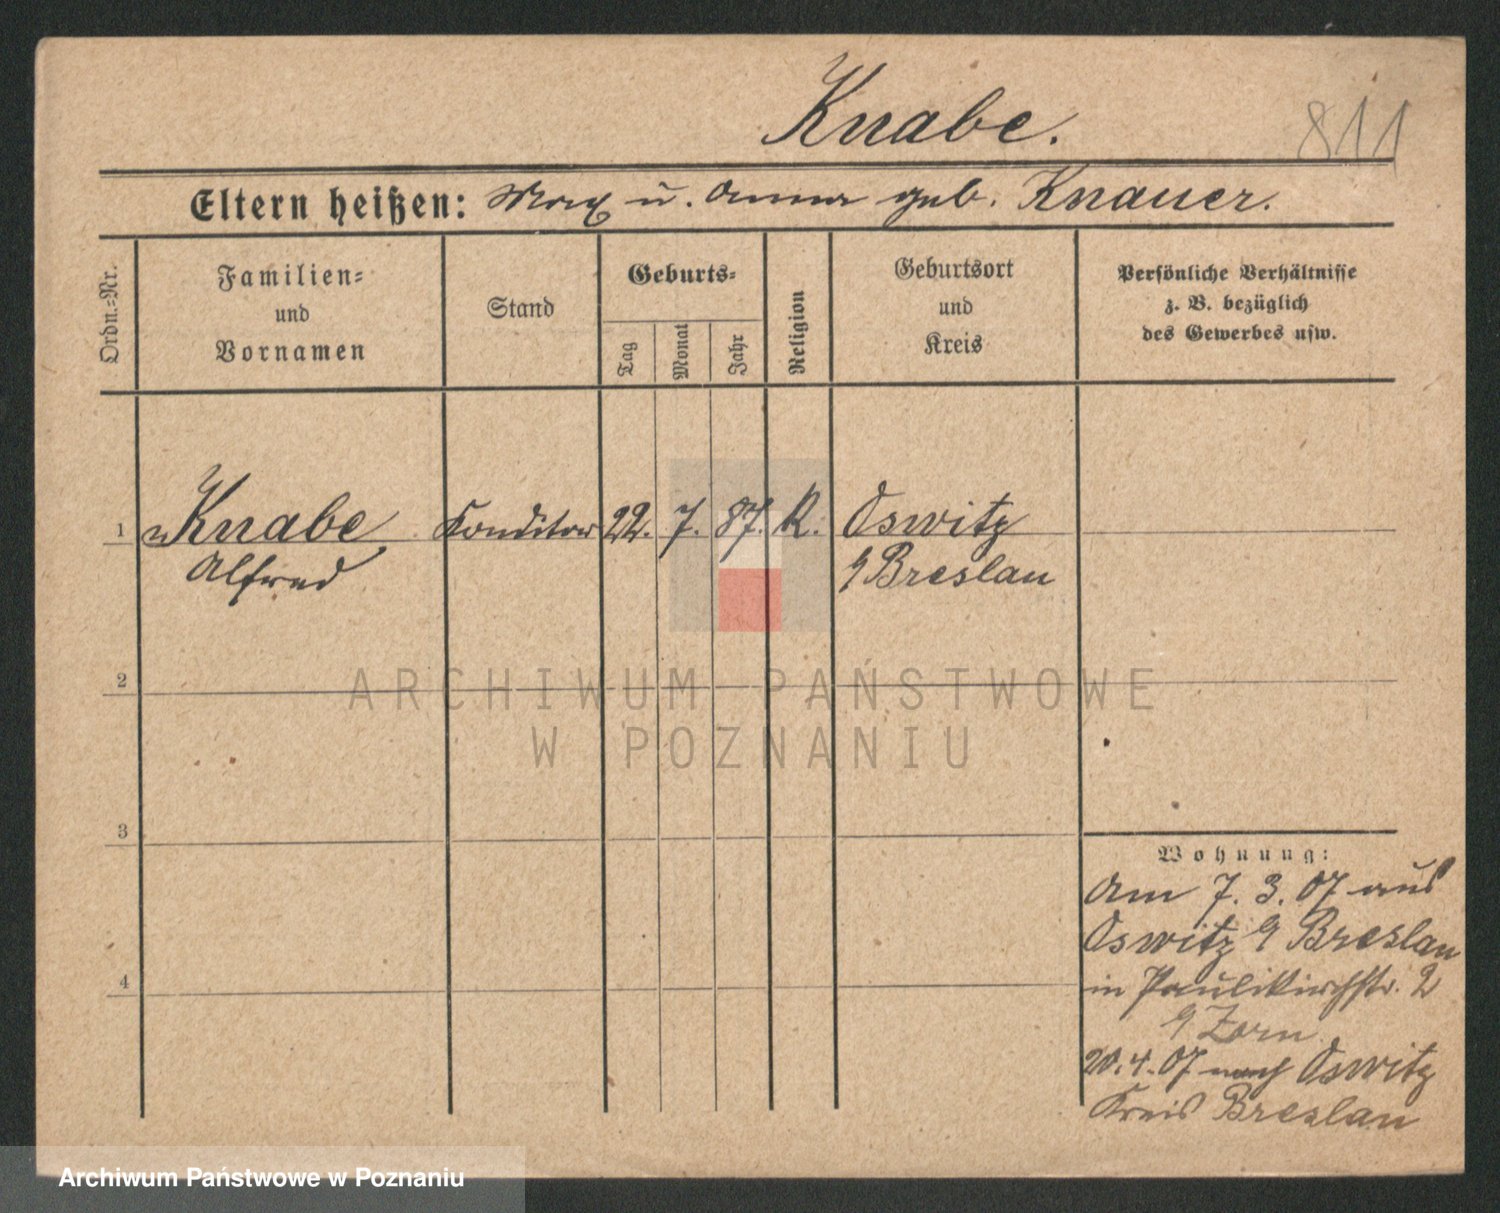 Knabe.
811
Eltern heißen: Max u. Anna geb. Knauer.
Ordn.=Nr.
Familien=
und
Vornamen
Stand
Geburts=
Tag
Monat
Jahr
Religion
Geburtsort
und
Kreis
Persönliche Verhältnisse
z. B. bezüglich
des Gewerbes usw.
1 Knabe Konditor 22. 7. 87. K. Oswitz
Alfred Breslau
2
ARCHIWUM PAŃSTWOWE
W POZNANIU
3
Wohnung:
Am 7. 3. 07 aus
Oswitz Breslau
in Paulikirchstr. 2
Zorn
20. 4. 07 nach Oswitz
Kreis Breslau
4
Archiwum Państwowe w Poznaniu